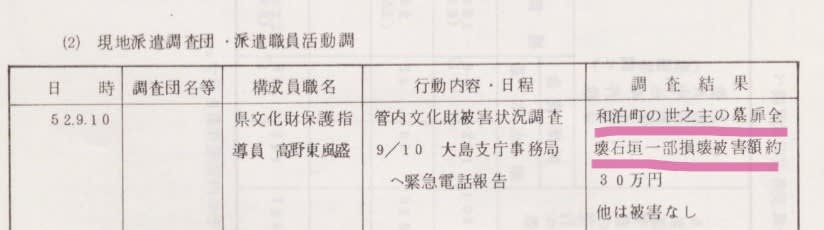 (2) 現地派遣調査団・派遣職員活動調
日 時 調査団名等 構成員職名 行動内容・日程 調査結果
52.9.10 県文化財保護指 管内文化財被害状況調査 和泊町の世之主の墓扉全
導員 高野東風盛 9/10 大島支庁事務局 壊石垣一部損壊被害額約
へ緊急電話報告 30万円
他は被害なし